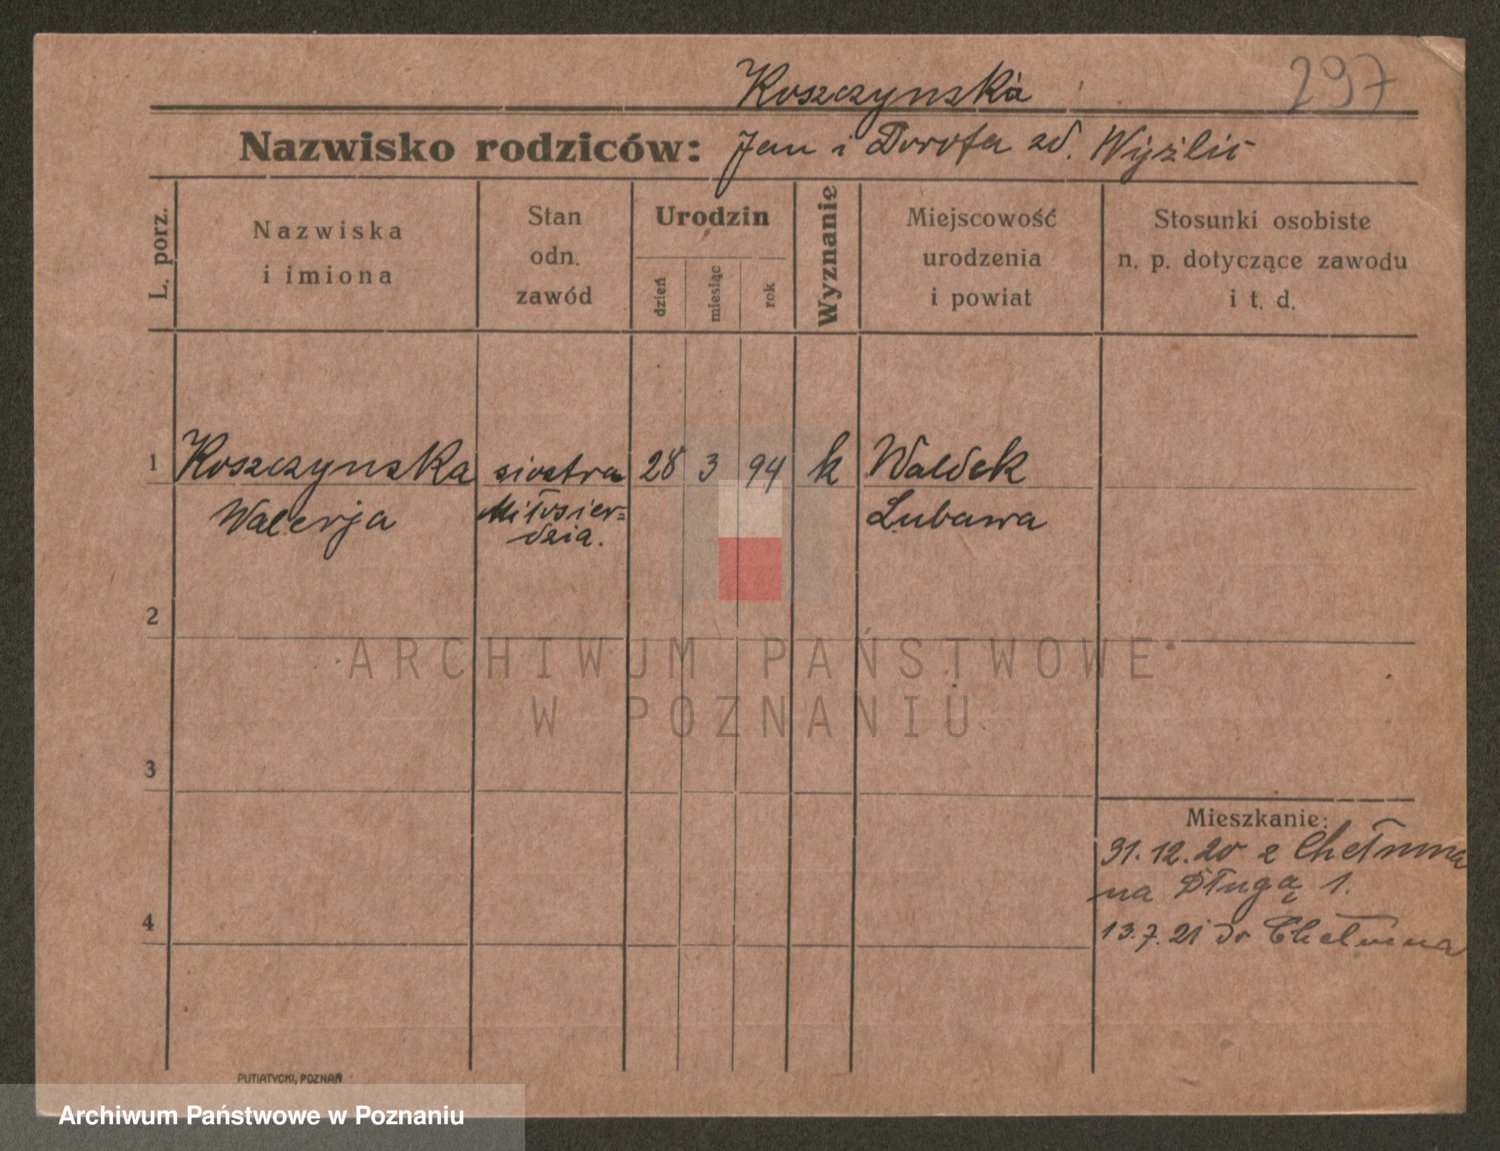 297
Koszczynska
Nazwisko rodziców: Jan i Dorota zd. Wyżlic
L. porz.
Nazwiska
i imiona
Stan
odn.
zawód
Urodzin
dzień
miesiąc
rok
Wyznanie
Miejscowość
urodzenia
i powiat
Stosunki osobiste
n. p. dotyczące zawodu
i t. d.
1 Koszczynska siostra 28 3 94 k Waldek
Walerja Miłosier=
dzia. Lubawa
2
ARCHIWUM PAŃSTWOWE
W POZNANIU
3
Mieszkanie:
31.12.20 z Chełmna
na Długą 1.
4
13.7.21 do Chełmna
PUTIATYCKI, POZNAŃ
Archiwum Państwowe w Poznaniu